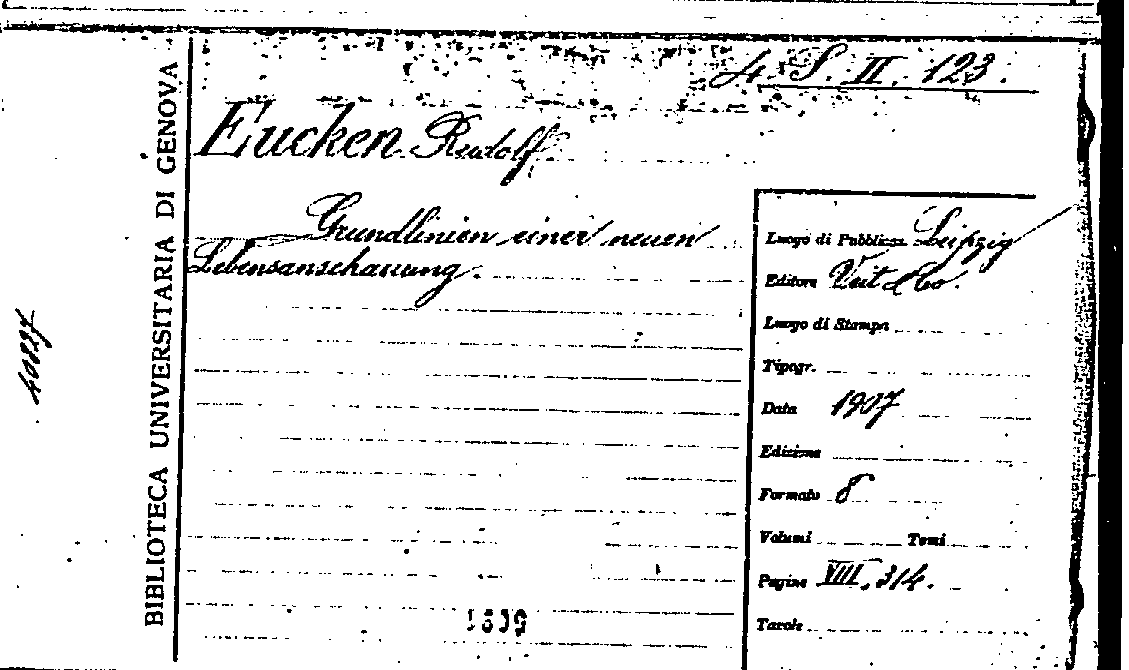 4. S. II. 123.
Eucken Rudolf
Grundlinien einer neuen
Lebensanschauung.
Luogo di Pubblicaz. Leipzig
Editore Veit & Co.
Luogo di Stampa
Tipogr.
Data 1907
Edizione
Formato 8
Volumi Tomi
Pagine VIII, 314.
Tavole
BIBLIOTECA UNIVERSITARIA DI GENOVA